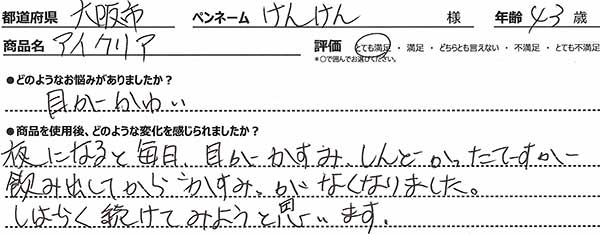 都道府県 大阪市 ペンネーム けんけん 様 年齢 43 歳
商品名 アイクリア 評価 とても満足 ・ 満足 ・ どちらとも言えない ・ 不満足 ・ とても不満足
*○で囲んでお選びください。
●どのようなお悩みがありましたか？
目がかわい
●商品を使用後、どのような変化を感じられましたか？
夜になると毎日、目がかすみ、しんどかったですが
飲み出してから“かすみ、がなくなりました。
しばらく続けてみようと思います。